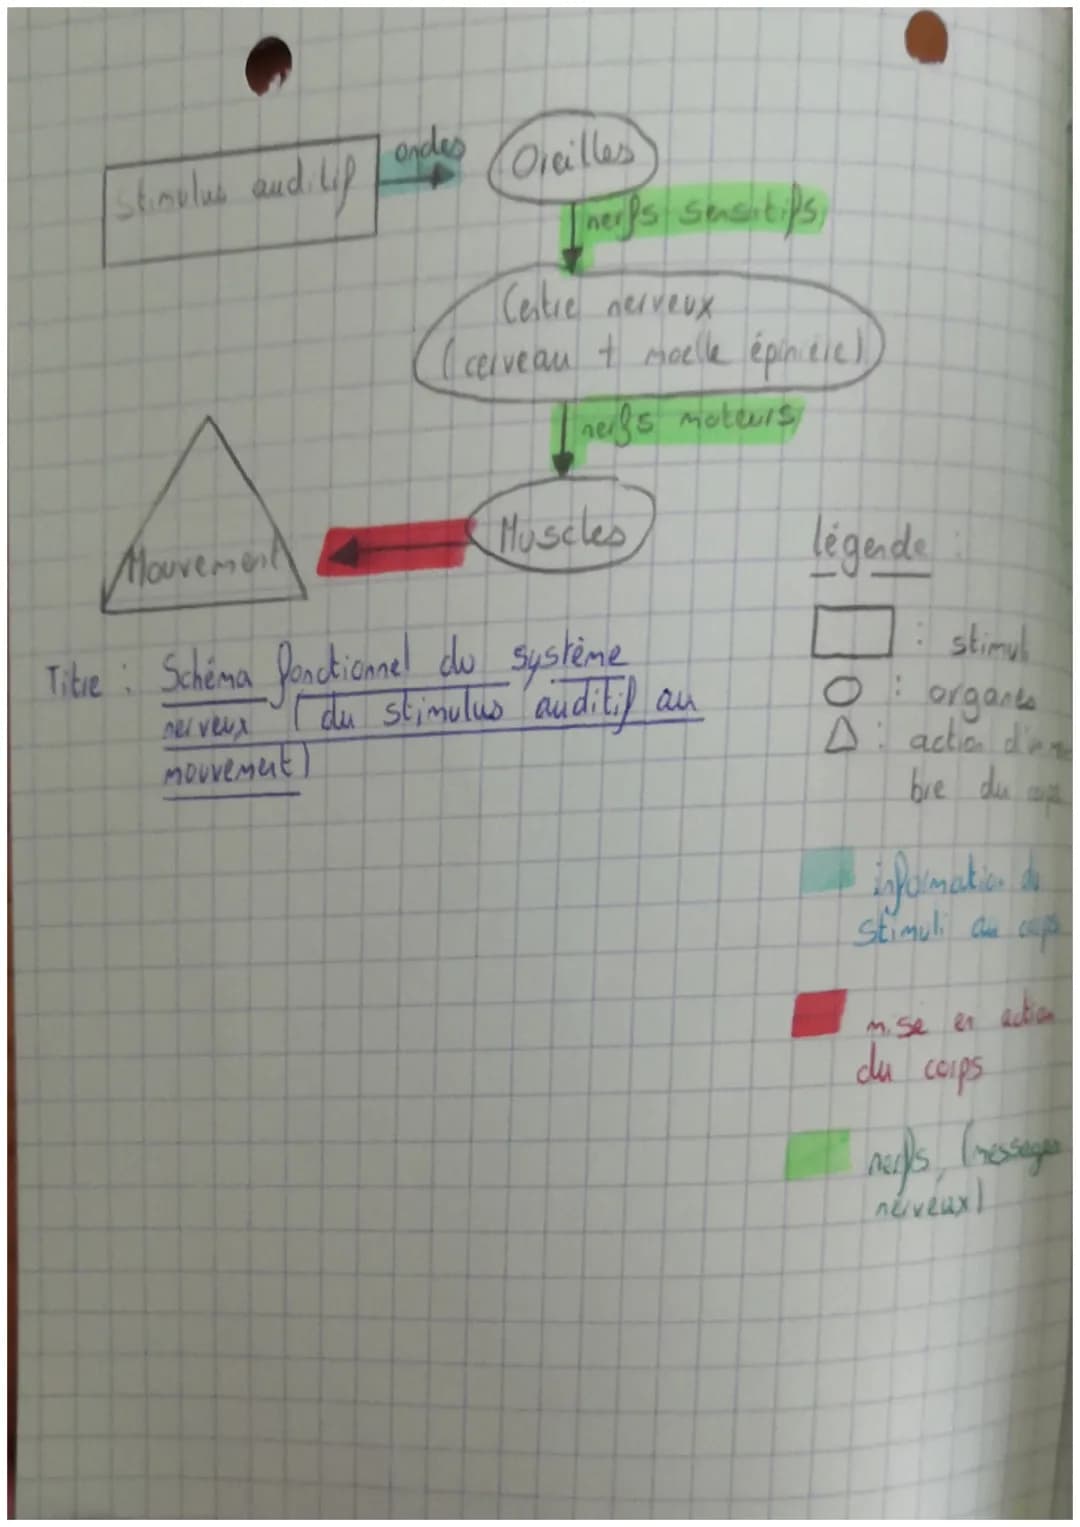 stimulus auditif
ondes
Oreilles
nerfs sensitifs
Centre nerveux
(cerveau + moelle épinière)
nerfs moteurs
Muscles
Mouvement
Titre : Schéma fonctionnel du système
nerveux (du stimulus auditif au
mouvement)
légende :
: stimuli
: organes
: action d'un
bre du corps
information du
stimuli au corps
mise en action
du corps
nerfs, (messages
nerveux)